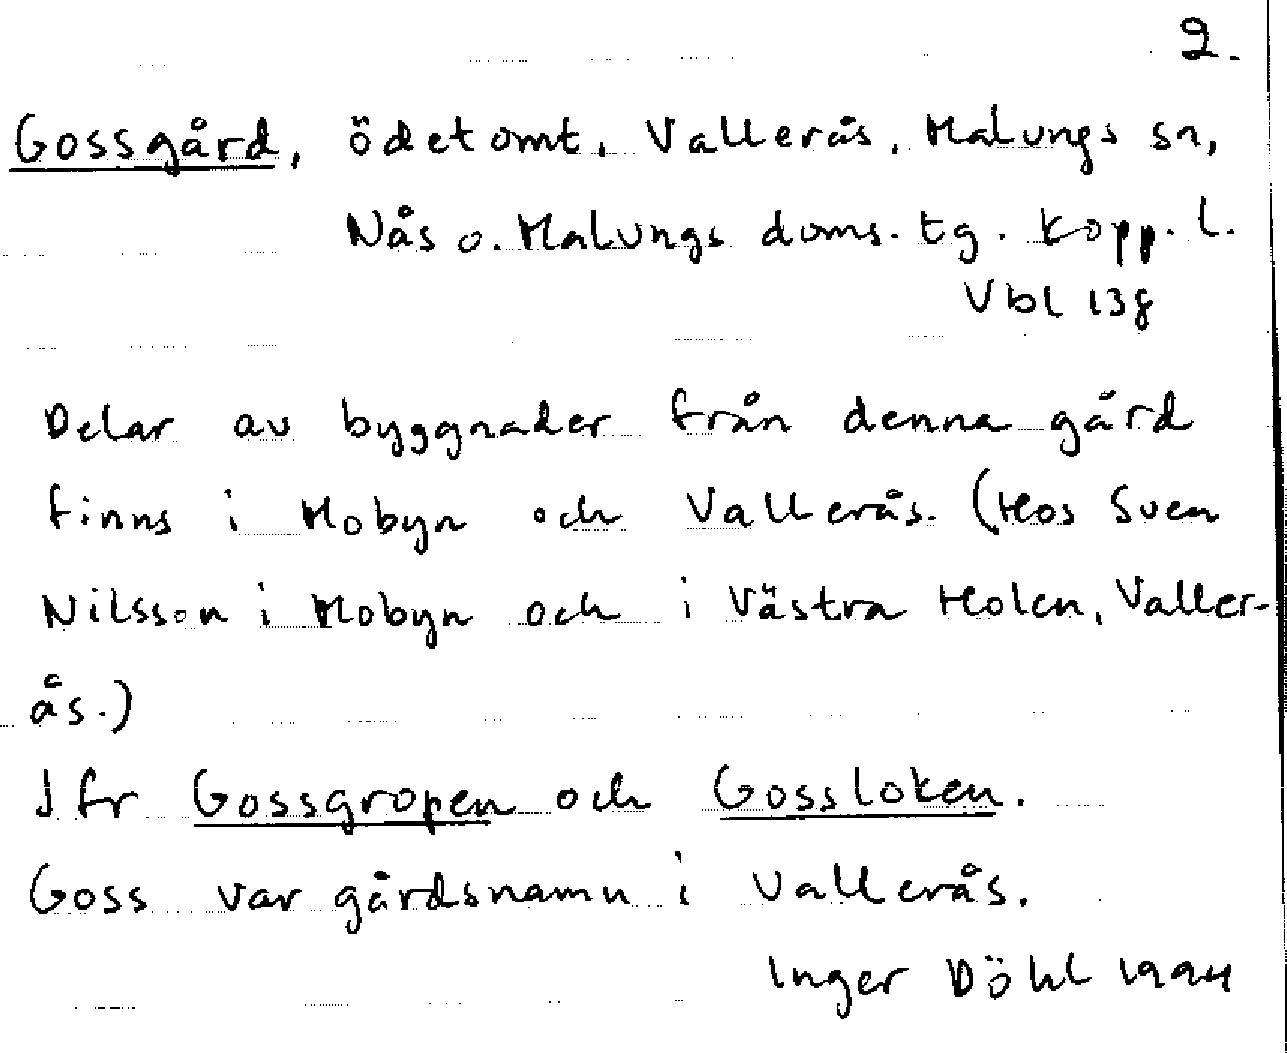 2.
Gossgård, ödetomt, Vallerås, Malungs sn,
Nås o. Malungs doms. tg. Kopp. l.
Vbl 13g
Delar av byggnader från denna gård
finns i Mobyn och Vallerås. (Hos Sven
Nilsson i Mobyn och i Västra Holen, Valler-
ås.)
Jfr Gossgropen och Gossloken.
Goss var gårdsnamn i Vallerås.
Inger Döhl 1994